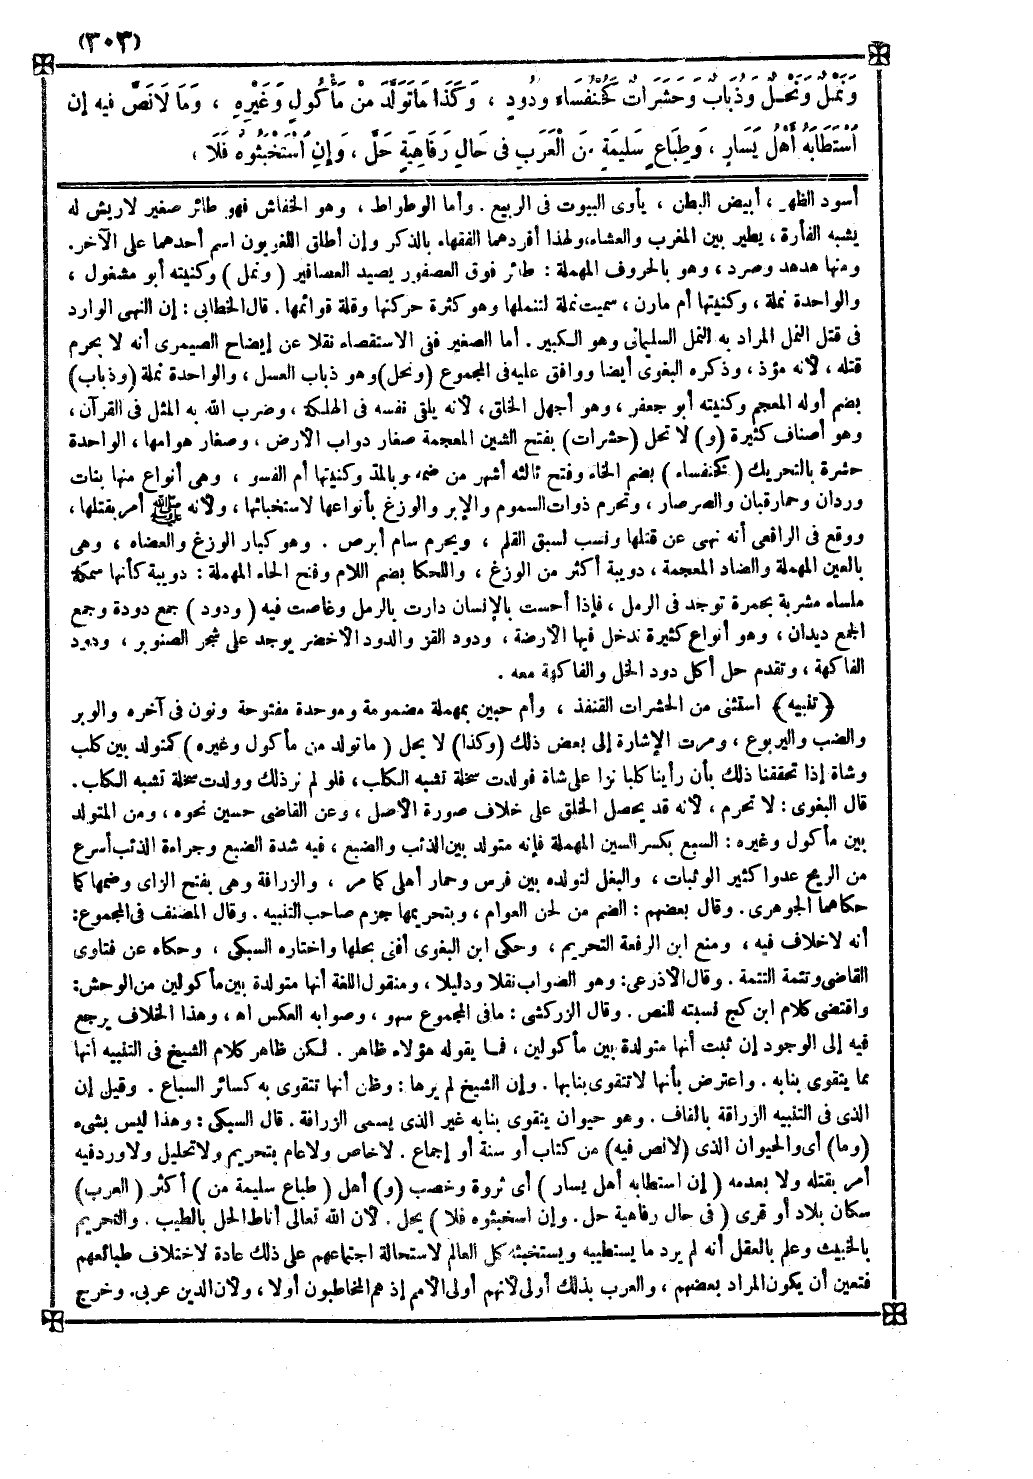 (٣٠٣)
وَنَمْلٌ وَنَحْلٌ وَذُبَابٌ وَحَشَرَاتٌ كَخُنْفَسَاءَ وَدُودٍ ، وَكَذَا مَا تَوَلَّدَ مِنْ مَأْكُولٍ وَغَيْرِهِ ، وَمَا لَا نَصَّ فِيهِ إِن
اسْتَطَابَهُ أَهْلُ يَسَارٍ ، وَطِبَاعٍ سَلِيمَةٍ مِنَ الْعَرَبِ فِى حَالِ رَفَاهِيَةٍ حَلَّ ، وَإِنِ اسْتَخْبَثُوهُ فَلَا ،
أسود الظهر ، أبيض البطن ، يأوى البيوت فى الربيع . وأما الوطواط ، وهو الخفاش فهو طائر صغير لاريش له
يشبه الفأرة ، يطير بين المغرب والعشاء،ولهذا أفردهما الفقهاء بالذكر وإن أطلق اللغويون اسم أحدهما على الآخر.
ومنها هدهد وصرد ، وهو بالحروف المهملة : طائر فوق العصفور يصيد العصافير (ونمل) وكنيته أبو مشغول ،
والواحدة نملة ، وكنيتها أم مازن ، سميت نملة لتنملها وهو كثرة حركتها وقلة قوائمها . قال الخطابى : إن النهى الوارد
فى قتل النمل المراد به النمل السليمانى وهو الكبير . أما الصغير ففى الاستقصاء نقلا عن إيضاح الصيمرى أنه لا يحرم
قتله ، لأنه مؤذ ، وذكره البغوى أيضا ووافق عليه فى المجموع (ونحل) وهو ذباب العسل ، والواحدة نحلة (وذباب)
بضم أوله المعجم وكنيته أبو جعفر ، وهو أجهل الخلق ، لأنه يلقى نفسه فى الهلكة ، وضرب الله به المثل فى القرآن ،
وهو أصناف كثيرة (و) لا تحل (حشرات) بفتح الشين المعجمة صغار دواب الأرض ، وصغار هوامها ، الواحدة
حشرة بالتحريك (كخنفساء) بضم الخاء وفتح ثالثه أشهر من ضمه وبالمد وكنيتها أم الفسو ، وهى أنواع منها بنات
وردان وحمارقبان والصرصار ، وتحرم ذوات السموم والإبر والوزغ بأنواعها لاستخبائها ، ولأنه ﷺ أمر بقتلها ،
ووقع فى الرافعى أنه نهى عن قتلها ونسب لسبق القلم ، ويحرم سام أبرص . وهو كبار الوزغ والعضاه ، وهى
بالعين المهملة والضاد المعجمة ، دويبة أكثر من الوزغ ، واللحكا بضم اللام وفتح الحاء المهملة : دويبة كأنها سمكة
ملساء مشربة بحمرة توجد فى الرمل ، فإذا أحست بالإنسان دارت بالرمل وغاصت فيه (ودود) جمع دودة وجمع
الجمع ديدان ، وهو أنواع كثيرة تدخل فيها الأرضة ، ودود القز والدود الأخضر يوجد على شجر الصنوبر ، ودود
الفاكهة ، وتقدم حل أكل دود الخل والفاكهة معه .
﴿تنبيه﴾ استثنى من الحشرات القنفذ ، وأم حبين بمهملة مضمومة وموحدة مفتوحة ونون فى آخره والوبر
والضب واليربوع ، ومرت الإشارة إلى بعض ذلك (وكذا) لا يحل (ما تولد من مأكول وغيره) كمتولد بين كلب
وشاة إذا تحققنا ذلك بأن رأينا كلبا نزا على شاة فولدت سخلة تشبه الكلب ، فلو لم نر ذلك وولدت سخلة تشبه الكلب .
قال البغوى : لا تحرم ، لأنه قد يحصل الخلق على خلاف صورة الأصل ، وعن القاضى حسين نحوه ، ومن المتولد
بين مأكول وغيره : السبع بكسر السين المهملة فإنه متولد بين الذئب والضبع ، فيه شدة الضبع وجراءة الذئب أسرع
من الريح عدوا كثير الوثبات ، والبغل لتولده بين فرس وحمار أهلى كما مر ، والزرافة وهى بفتح الزاى وضمها كما
حكاهما الجوهرى . وقال بعضهم : الضم من لحن العوام ، وبتحريمها جزم صاحب التنبيه . وقال المصنف فى المجموع:
أنه لا خلاف فيه ، ومنع ابن الرفعة التحريم ، وحكى ابن البغوى أفتى بحلها واختاره السبكى ، وحكاه عن فتاوى
القاضى وتتمة التتمة . وقال الأذرعى: وهو الصواب نقلا ودليلا ، ومنقول اللغة أنها متولدة بين مأكولين من الوحش:
واقتضى كلام ابن كج نسبته للنص . وقال الزركشى : مافى المجموع سهو ، وصوابه العكس اه ، وهذا الخلاف يرجع
فيه إلى الوجود إن ثبت أنها متولدة بين مأكولين ، فما يقوله هؤلاء ظاهر . لكن ظاهر كلام الشيخ فى التنبيه أنها
مما يتقوى بنابه . واعترض بأنها لا تتقوى بنابها . وإن الشيخ لم يرها : وظن أنها تتقوى به كسائر السباع . وقيل إن
الذى فى التنبيه الزراقة بالقاف . وهو حيوان يتقوى بنابه غير الذى يسمى الزرافة . قال السبكى : وهذا ليس بشىء
(وما) أى والحيوان الذى (لا نص فيه) من كتاب أو سنة أو إجماع . لا خاص ولا عام بتحريم ولا تحليل ولا ورد فيه
أمر بقتله ولا بعدمه (إن استطابه أهل يسار) أى ثروة وخصب (و) أهل (طباع سليمة من) أكثر (العرب)
سكان بلاد أو قرى (فى حال رفاهية حل . وإن اسخبثوه فلا) يحل . لأن الله تعالى أناط الحل بالطيب . والتحريم
بالخبيث وعلم بالعقل أنه لم يرد ما يستطيبه ويستخبثه كل العالم لاستحالة اجتماعهم على ذلك عادة لاختلاف طبائعهم
فتعين أن يكون المراد بعضهم ، والعرب بذلك أولى لأنهم أولى الأمم إذ هم المخاطبون أولا ، ولأن الدين عربى. وخرج